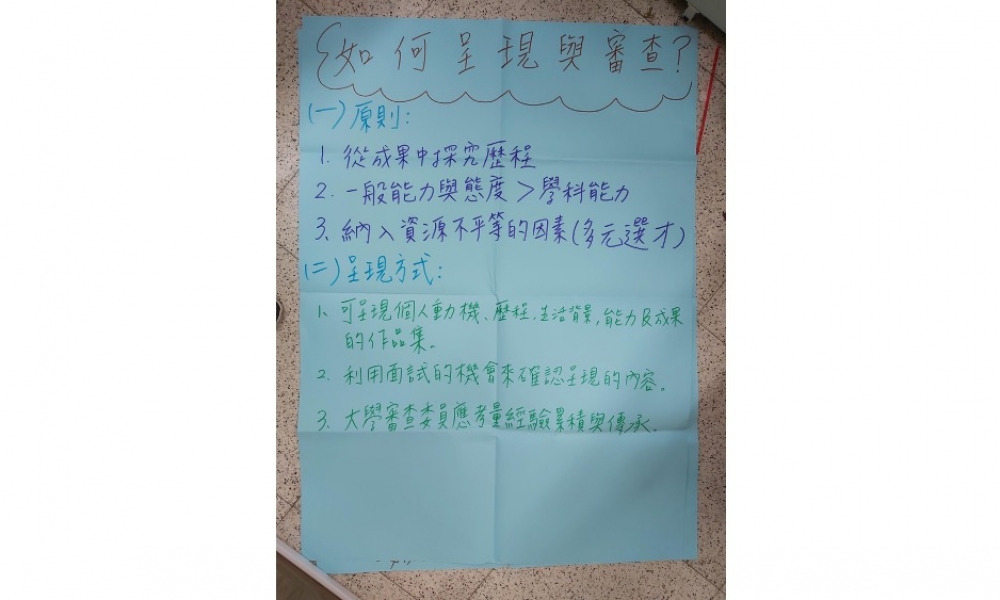 如何呈現與審查?
(一)原則:
1. 從成果中探究歷程
2. 一般能力與態度>學科能力
3、納入資源不平等的因素(多元選才)
(二)呈現方式:
1、可呈現個人動機、歷程、生活背景,能力及成果
的作品集。
2、利用面試的機會來確認呈現的內容。
3、大學審查委員應考量經驗累積與傳承。